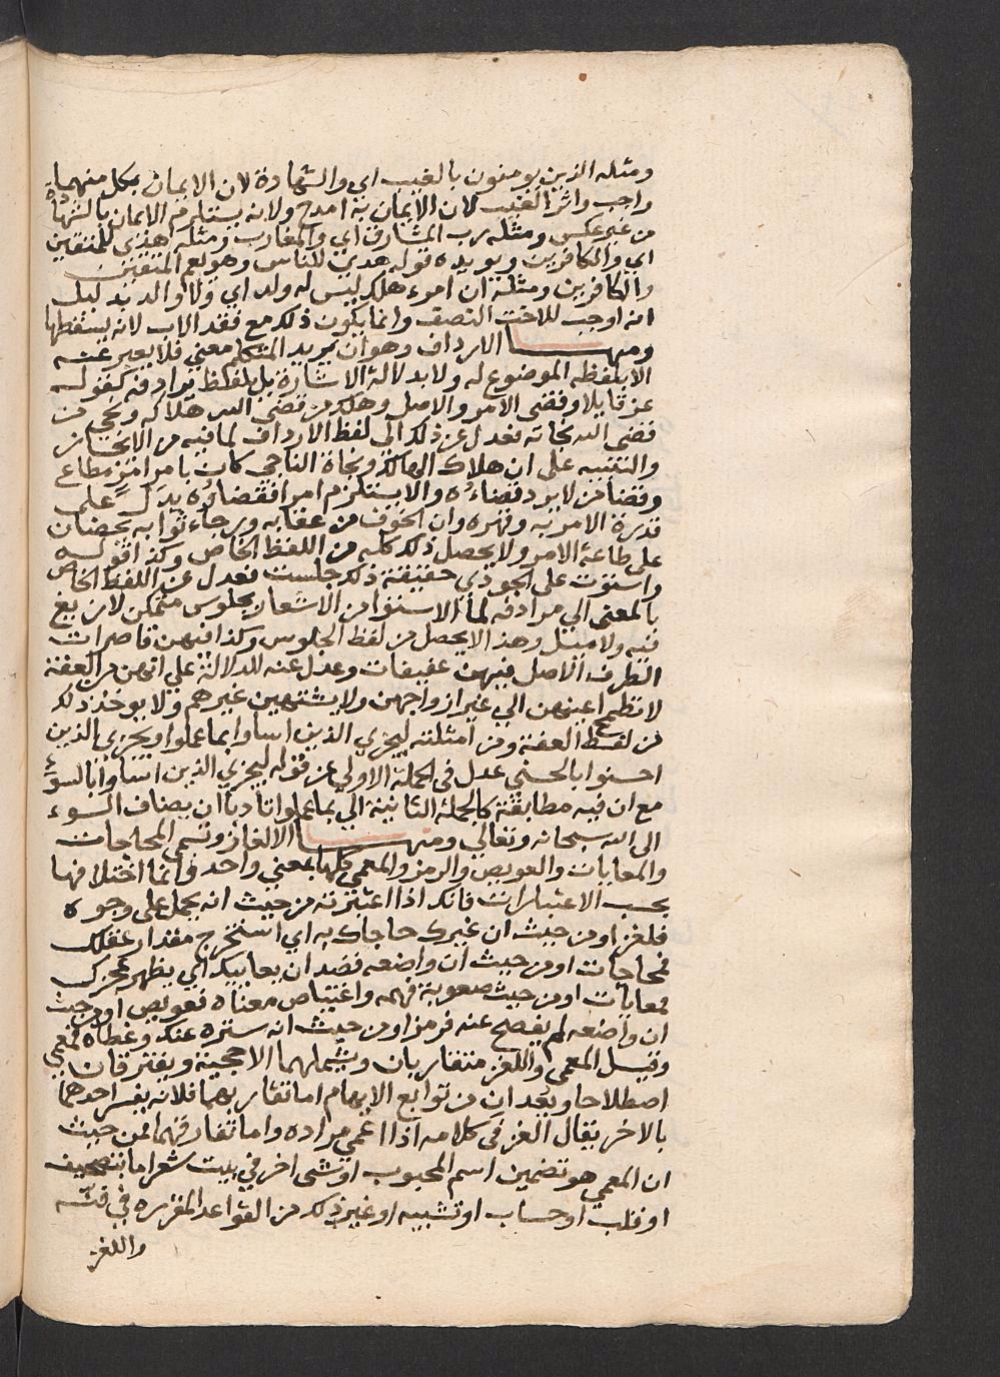 ومثله الذين يومنون بالغيب اي والشهادة لان الايمان بكل منهما
واجب واثر الغيب لان الايمان به امدح ولانه يستلزم الايمان بالشهادة
من غير عكس ومثله رب المشارق اي والمغارب ومثله هدي للمتقين
اي والكافرين ويويده قوله هدي للناس وهو يعم المتقين
والكافرين ومثله ان امرء هلك ليس له ولد اي ولا والد بدليل
انه اوجب للاخت النصف وانما يكون ذلك مع فقد الاب لانه يسقطها
ومنها الارداف وهو ان يريد المتكلم معني فلا يعبر عنه
الا بلفظه الموضوع له ولا بدلالة الاشارة بل بلفظ يرادفه كقوله
عز قايلا وقضي الامر والاصل وهلك من قضي الله هلاكه ونجي من
قضي الله نجاته فعدل عن ذلك الي لفظ الارداف لما فيه من الايجاز
والتنبيه علي ان هلاك الهالك ونجاة الناجي كان بامر امر مطاع
وقضا من لا يرد قضاءه والا يستلزم امرا فقضاوه يدل علي
قدرة الامر به وقهره وان الخوف من عقابه ورجاء ثوابه يحضان
علي طاعة الامر ولا يحصل ذلك كله من اللفظ الخاص وكذا قوله
واستوت علي الجودي حقيقة ذلك جلست فعدل عن اللفظ الخاص
بالمعني الي مرادفه لما الاستوا من الاشعار بجلوس متمكن لا زيغ
فيه ولا ميل وهذا لا يحصل من لفظ الجلوس وكذا فيهن قاصرات
الطرف الاصل فيهن عفيفات وعدل عنه للدلالة علي انهن مع العفة
لا تطمح اعينهن الي غير ازواجهن ولا يشتهين غيرهم ولا يوخذ ذلك
من لفظ العفة ومن امثلته ليجزي الذين اساوا بما عملوا ويجزي الذين
احسنوا بالحسني عدل في الجملة الاولي عن قوله ليجزي الذين اساوا بالسوء
مع ان فيه مطابقة كالجملة الثانية الي بما عملوا تادبا ان يضاف السوء
الي الله سبحانه وتعالي ومنها الالغاز وتسمي المحاجات
والمعايات والعويص والرمز والمعمي كلها بمعني واحد وانما اختلافها
بحسب الاعتبارات فانك اذا اعتبرته من حيث انه يحمل علي وجوه
فلغز او من حيث ان غيرك حاجاك به اي استخرج مقدار عقلك
فمحاجات او من حيث ان واضعه قصد ان يعاييك اي يظهر عجزك
فمعايات او من حيث صعوبة فهمه واعتياص معناه فعويص او من حيث
ان واضعه لم يفصح عنه فرمز او من حيث انه ستره عنك وغطاه فمعمي
وقيل المعمي واللغز متقاربان ويشملهما الاحجية ويفترقان
اصطلاحا ويعدان من توابع الابهام اما تقاربهما فلانه يفسر احدهما
بالاخر يقال الغز في كلامه اذا اعمي مراده واما تفارقهما فمن حيث
ان المعمي هو تضمين اسم المحبوب او شي اخر في بيت شعر اما بتصحيف
او قلب او حساب او تشبيه او غير ذلك من القواعد المقرره في فنه
واللغز